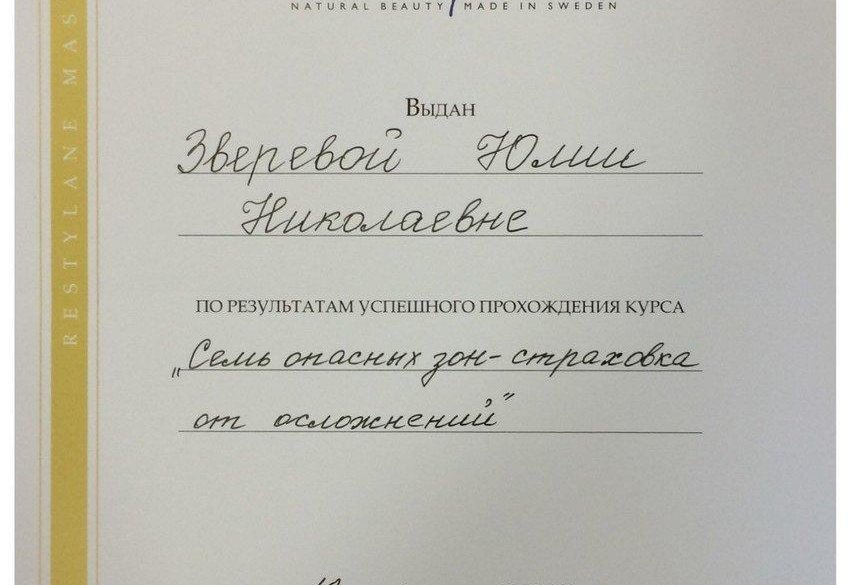 NATURAL BEAUTY MADE IN SWEDEN
Выдан
Зверевой Юлии
Николаевне
ПО РЕЗУЛЬТАТАМ УСПЕШНОГО ПРОХОЖДЕНИЯ КУРСА
„Семь опасных зон - страховка
от осложнений"
RESTYLANE MAS